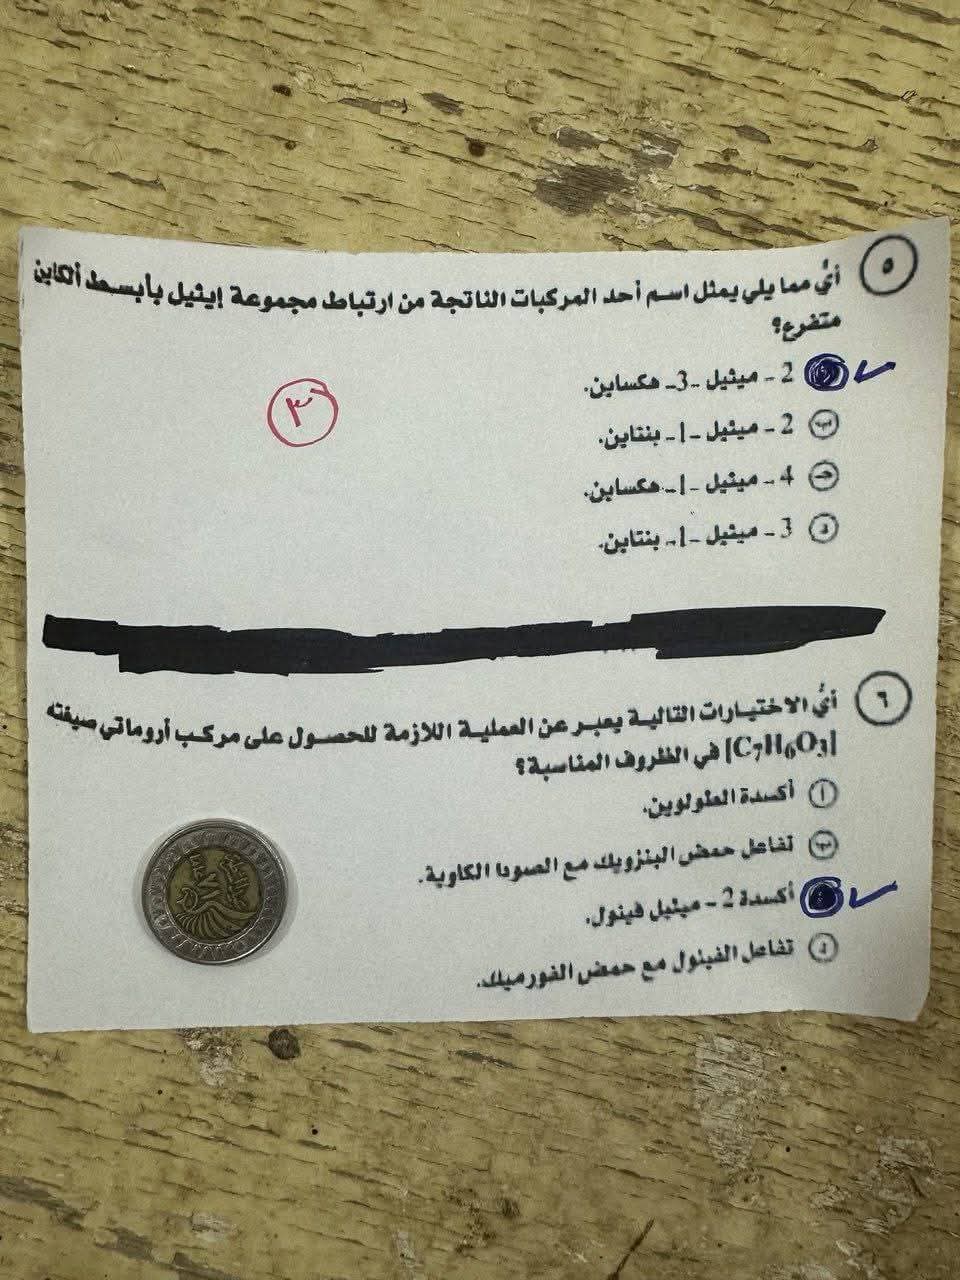 ٥
أيُّ مما يلي يمثل اسم أحد المركبات الناتجة من ارتباط مجموعة إيثيل بأبسط ألكاين
متفرع؟
2 - ميثيل -3- هكساين.
ب 2 - ميثيل -1- بنتاين.
جـ 4 - ميثيل -1- هكساين.
د 3 - ميثيل -1- بنتاين.
٣
٦
أيُّ الاختيارات التالية يعبر عن العملية اللازمة للحصول على مركب أروماتي صيغته
[C7H6O3] في الظروف المناسبة؟
أ أكسدة الطولوين.
ب تفاعل حمض البنزويك مع الصودا الكاوية.
أكسدة 2 - ميثيل فينول.
د تفاعل الفينول مع حمض الفورميك.